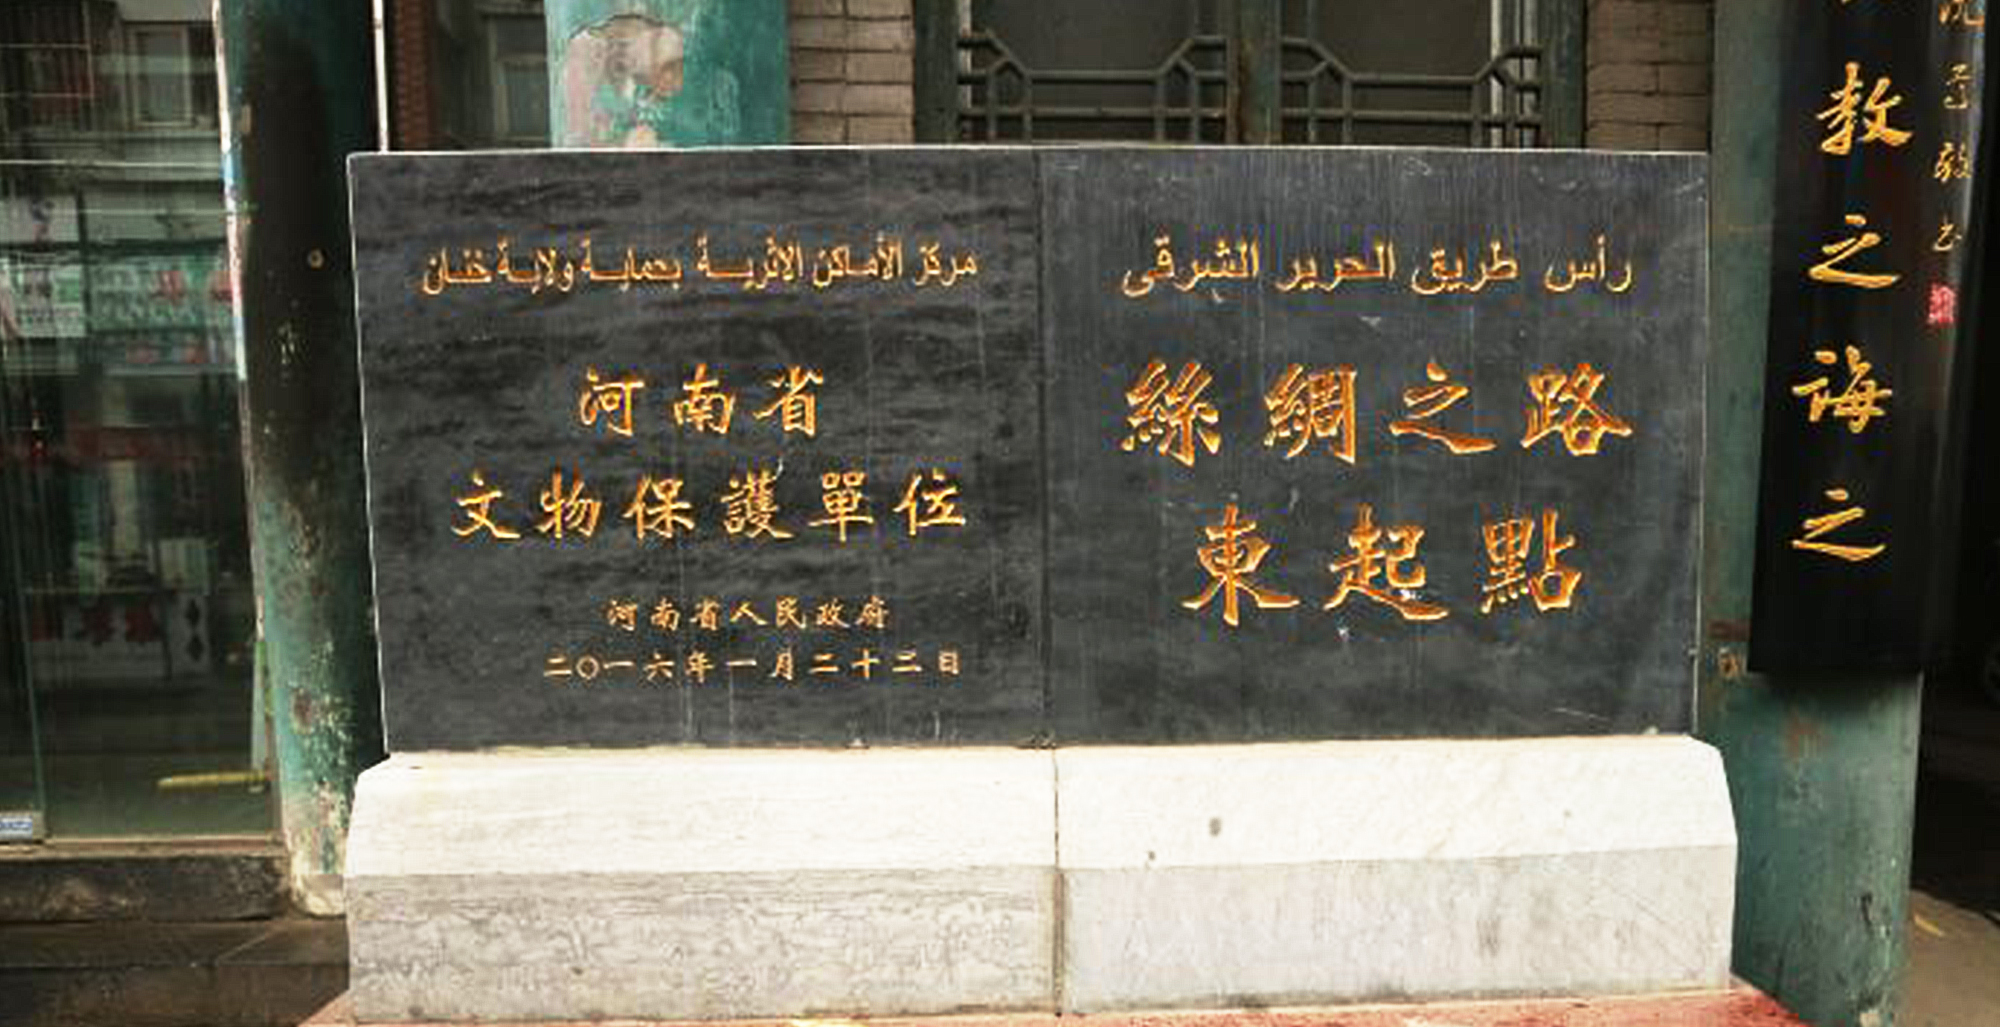 مركز الأماكن الاثرية بحماية ولاية خنان
河南省
文物保護單位
河南省人民政府
二〇一六年一月二十二日
رأس طريق الحرير الشرقى
絲綢之路
東起點
教之誨之